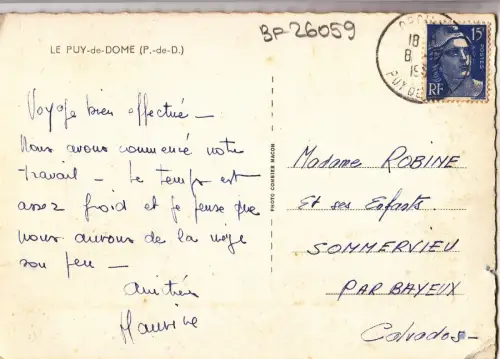 LE PUY-de-DOME (P.-de-D.)
BF-26059
18
8
PUY DE
15F
POSTES
RF
Voyage bien effectué –
Nous avons commencé notre
travail – Le temps est
assez froid et je pense que
nous aurons de la neige
sou peu –
Amitiés
Maurice
PHOTO COMBIER MACON
Madame ROBINE
Et ses Enfants.
SOMMERVIEU
PAR BAYEUX
Calvados –